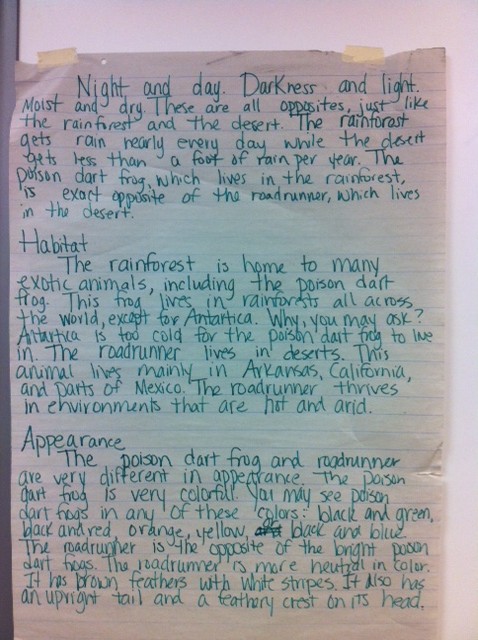 Night and day. Darkness and light.
Moist and dry. These are all opposites, just like
the rainforest and the desert. The rainforast
gets rain nearly every day while the desert
gets less than a foot of rain per year. The
poison dart frog, which lives in the rainforest,
is exact opposite of the roadrunner, which lives
in the desert.
Habitat
The rainforest is home to many
exotic animals, including the poison dart
frog. This frog lives in rainforests all across
the world, except for Antartica. Why, you may ask?
Antartica is too cold for the poison dart frog to live
in. The roadrunner lives in deserts. This
animal lives mainly in Arkansas, California,
and parts of Mexico. The roadrunner thrives
in environments that are hot and arid.
Appearance
The poison dart frog and roadrunner
are very different in appearance. The poison
dart frog is very colorful. You may see poison
dart frogs in any of these colors: black and green,
black and red, orange, yellow, black and blue.
The roadrunner is the opposite of the bright poison
dart frogs. The roadrunner is more neutral in color.
It has brown feathers with white stripes. It also has
an upright tail and a feathery crest on its head.